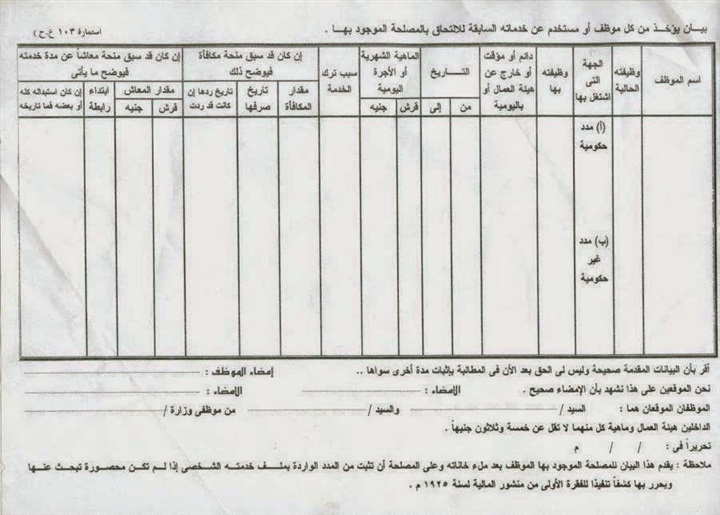 بيـان يؤخـذ من كل موظف أو مستخدم عن خدماته السابقة للالتحاق بالمصلحة الموجود بـهـا .
استمارة ١٠٣ ع.ح)
اسم الموظف
وظيفته الحالية
الجهة التى اشتغل بها
وظيفته بها
دائم أو مؤقت أو خارج عن هيئة العمال أو باليومية
التـــاريخ
من
إلى
الماهية الشهرية أو الأجرة اليومية
قرش
جنيه
سبب ترك الخدمة
إن كان قد سبق منحة مكافأة فيوضح ذلك
مقدار المكافأة
تاريخ صرفها
تاريخ ردها إن كانت قد ردت
إن كان قد سبق منحة معاشاً عن مدة خدمته فيوضح ما يأتى
مقدار المعاش
قرش
جنيه
ابتداء رابطة
إن كان استبداله كله أو بعضه فما تاريخه
(أ) مدد حكومية
(ب) مدد غير حكومية
أقر بأن البيانات المقدمة صحيحة وليس لى الحق بعد الأن فى المطالبة بإثبات مدة أخرى سواها ..
إمضاء الموظف :
نحن الموقعين على هذا نشهد بأن الإمضاء صحيح .
الامضاء :
الامضاء :
الموظفان الموقعان هما : السيد / والسيد / من موظفى وزارة /
الداخلين هيئة العمال وماهية كل منهما لا تقل عن خمسة وثلاثون جنيهاً .
تحريراً فى : / / م
ملاحظة : يقدم هذا البيان للمصلحة الموجود بها الموظف بعد ملء خاناته وعلى المصلحة أن تثبت من المدد الواردة بملـف خدمتـه الشخصى إذا لـم تكـن محصـورة تبحث عنهـا
ويحرر بها كشفاً تنفيذاً للفقرة الأولى من منشور المالية لسنة ١٩٢٥ م .